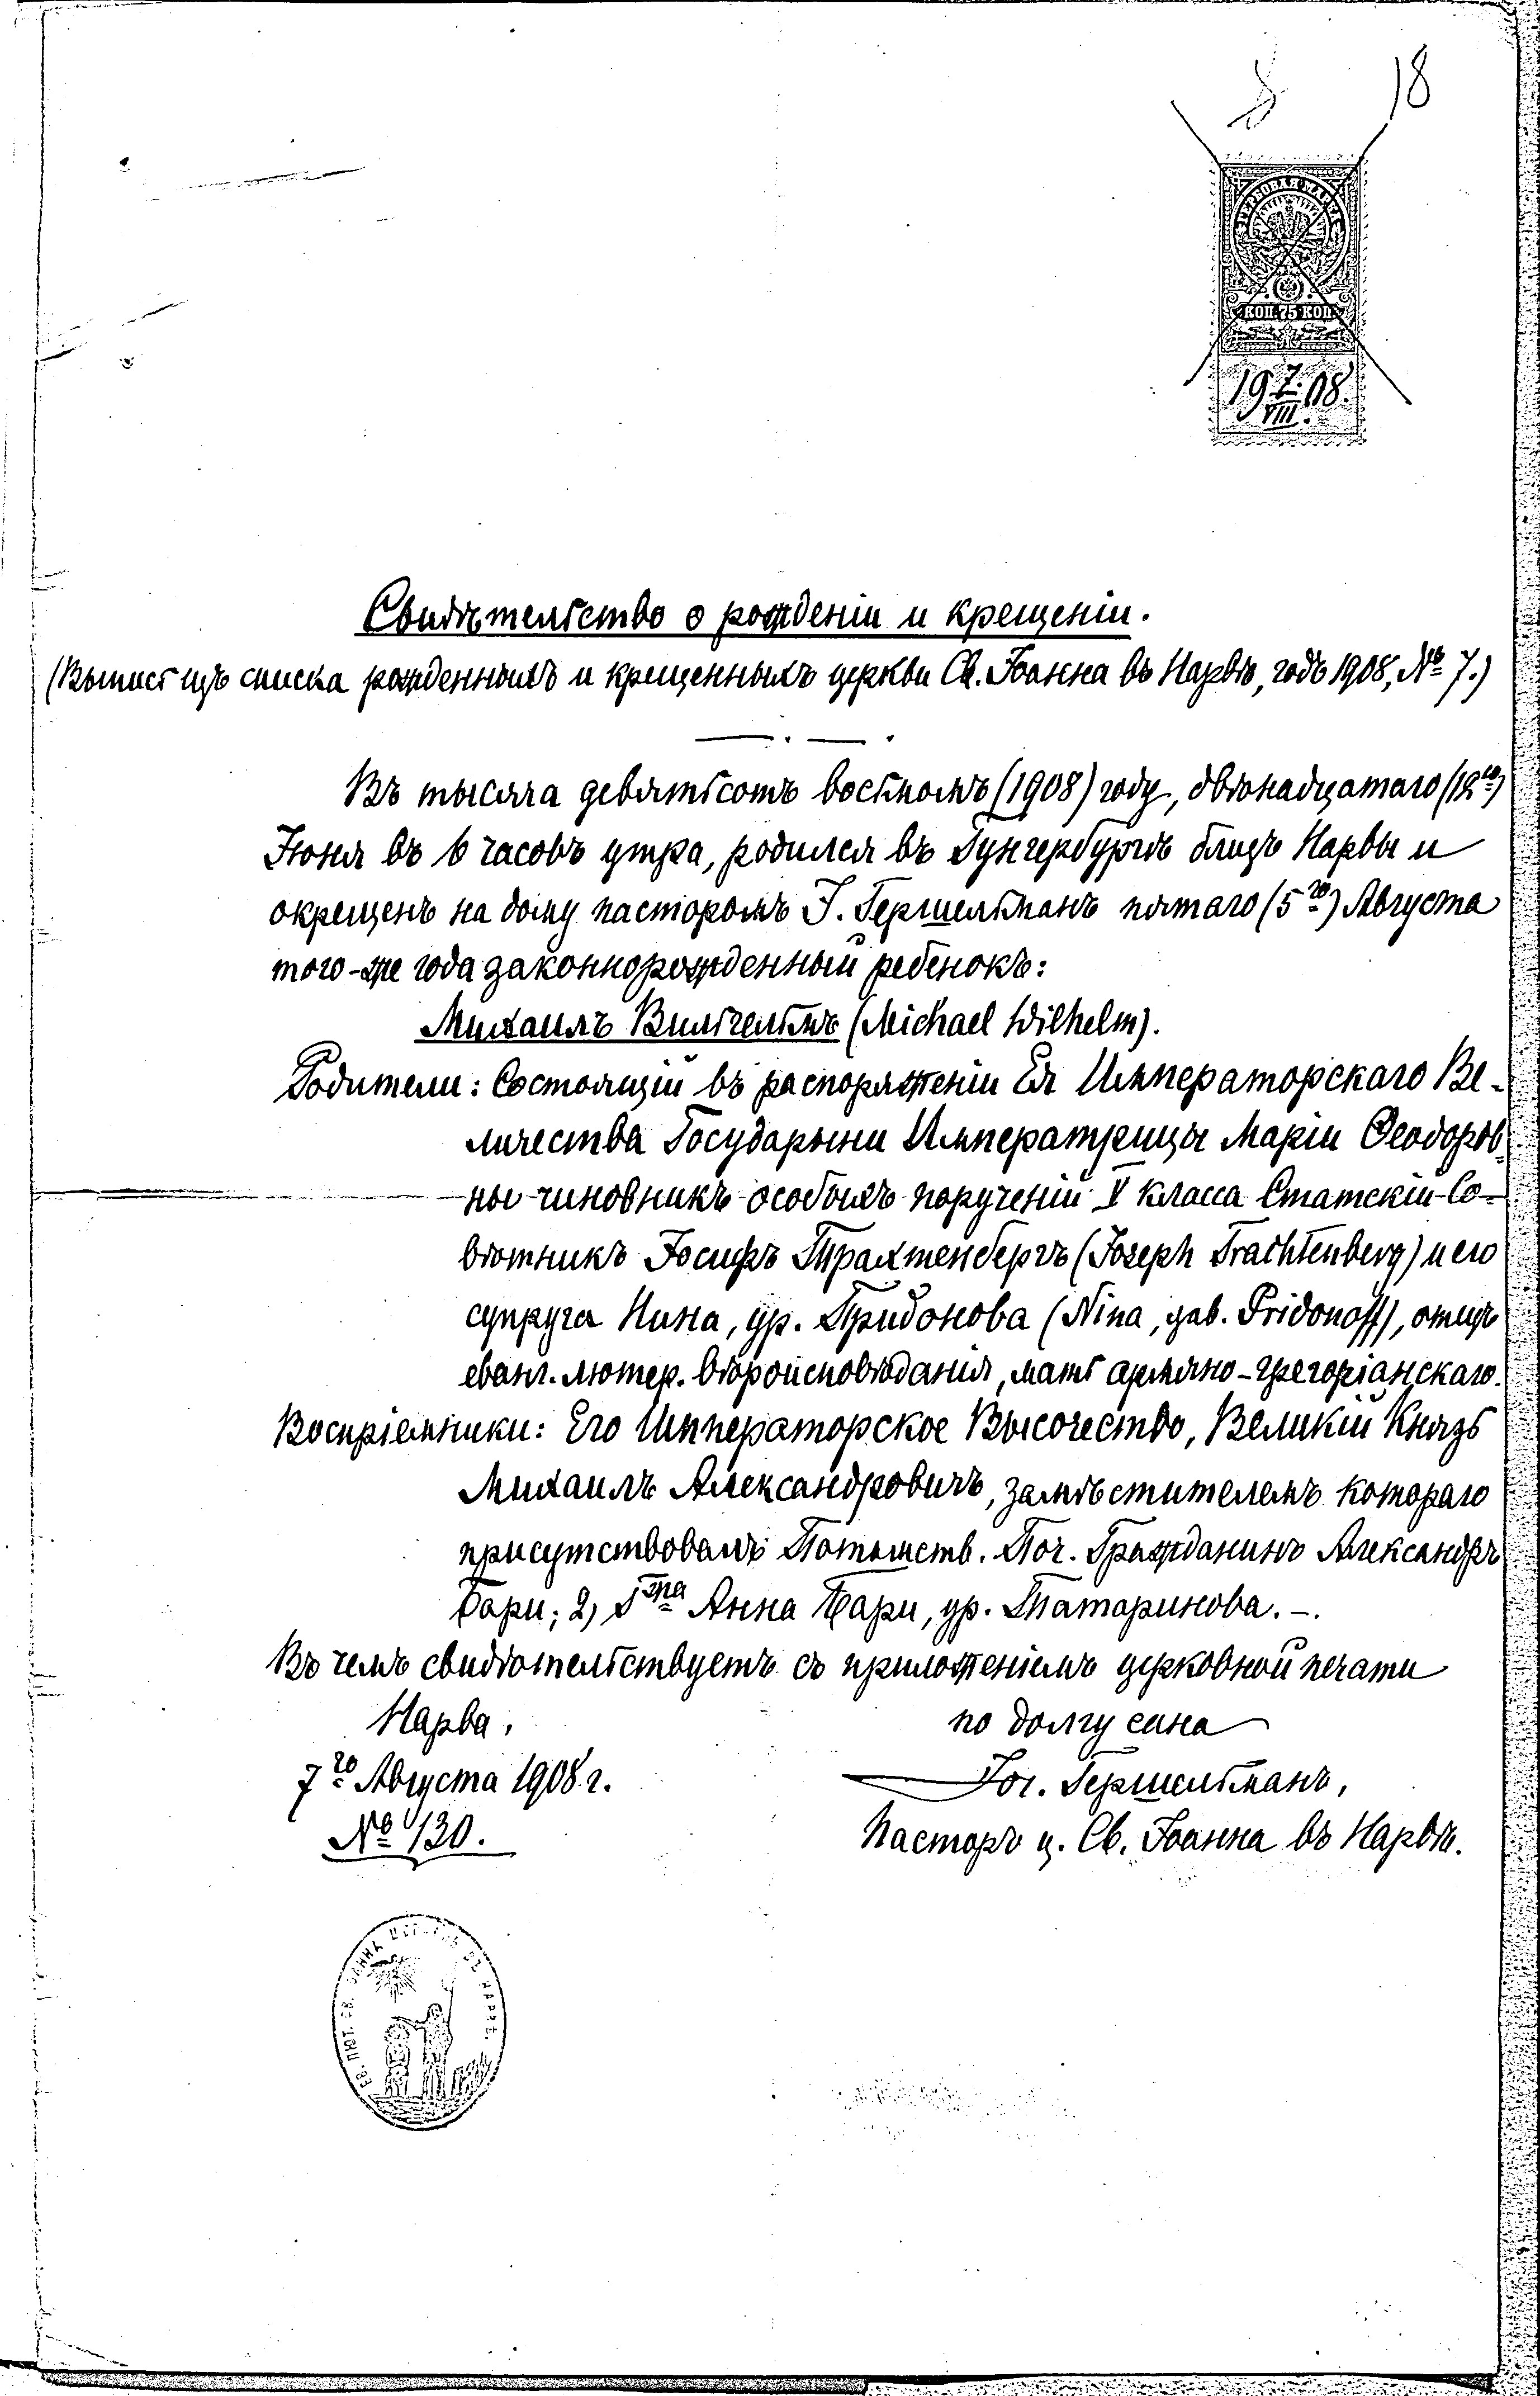 18
ГЕРБОВАЯ МАРКА
КОП. 75 КОП.
19 7/VIII. 08.
Свидѣтельство о рожденіи и крещеніи.
(Выпись изъ списка рожденныхъ и крещенныхъ церкви Св. Іоанна въ Нарвѣ, годъ 1908, № 7.)
Въ тысяча девятьсотъ восьмомъ (1908) году, двѣнадцатаго (12го)
Іюня въ 6 часовъ утра, родился въ Гунгербургѣ близъ Нарвы и
окрещенъ на дому пасторомъ І. Гершельманъ пятаго (5го) Августа
того-же года законнорожденный ребенокъ:
Михаилъ Вильгельмъ (Michael Wilhelm).
Родители: Состоящій въ распоряженіи Ея Императорскаго Ве-
личества Государыни Императрицы Маріи Ѳеодоров-
ны чиновникъ особыхъ порученій V класса Статскій Со-
вѣтникъ Іосифъ Трахтенбергъ (Joseph Trachtenberg) и его
супруга Нина, ур. Придонова (Nina, geb. Pridonoff), отецъ
еванг. лютер. вѣроисповѣданія, мать армяно-грегоріанскаго.
Воспріемники: Его Императорское Высочество, Великій Князь
Михаилъ Александровичъ, замѣстителемъ котораго
присутствовалъ Потомств. Поч. Гражданинъ Александръ
Бари; 2, Гжа Анна Бари, ур. Татаринова. –.
Въ чемъ свидѣтельствуетъ съ приложеніемъ церковной печати
Нарва, по долгу сана
7го Августа 1908 г. Іог. Гершельманъ,
№ 130. Пасторъ ц. Св. Іоанна въ Нарвѣ.
ЕВ. ЛЮТ. СВ. ВЪ НАРВѢ.